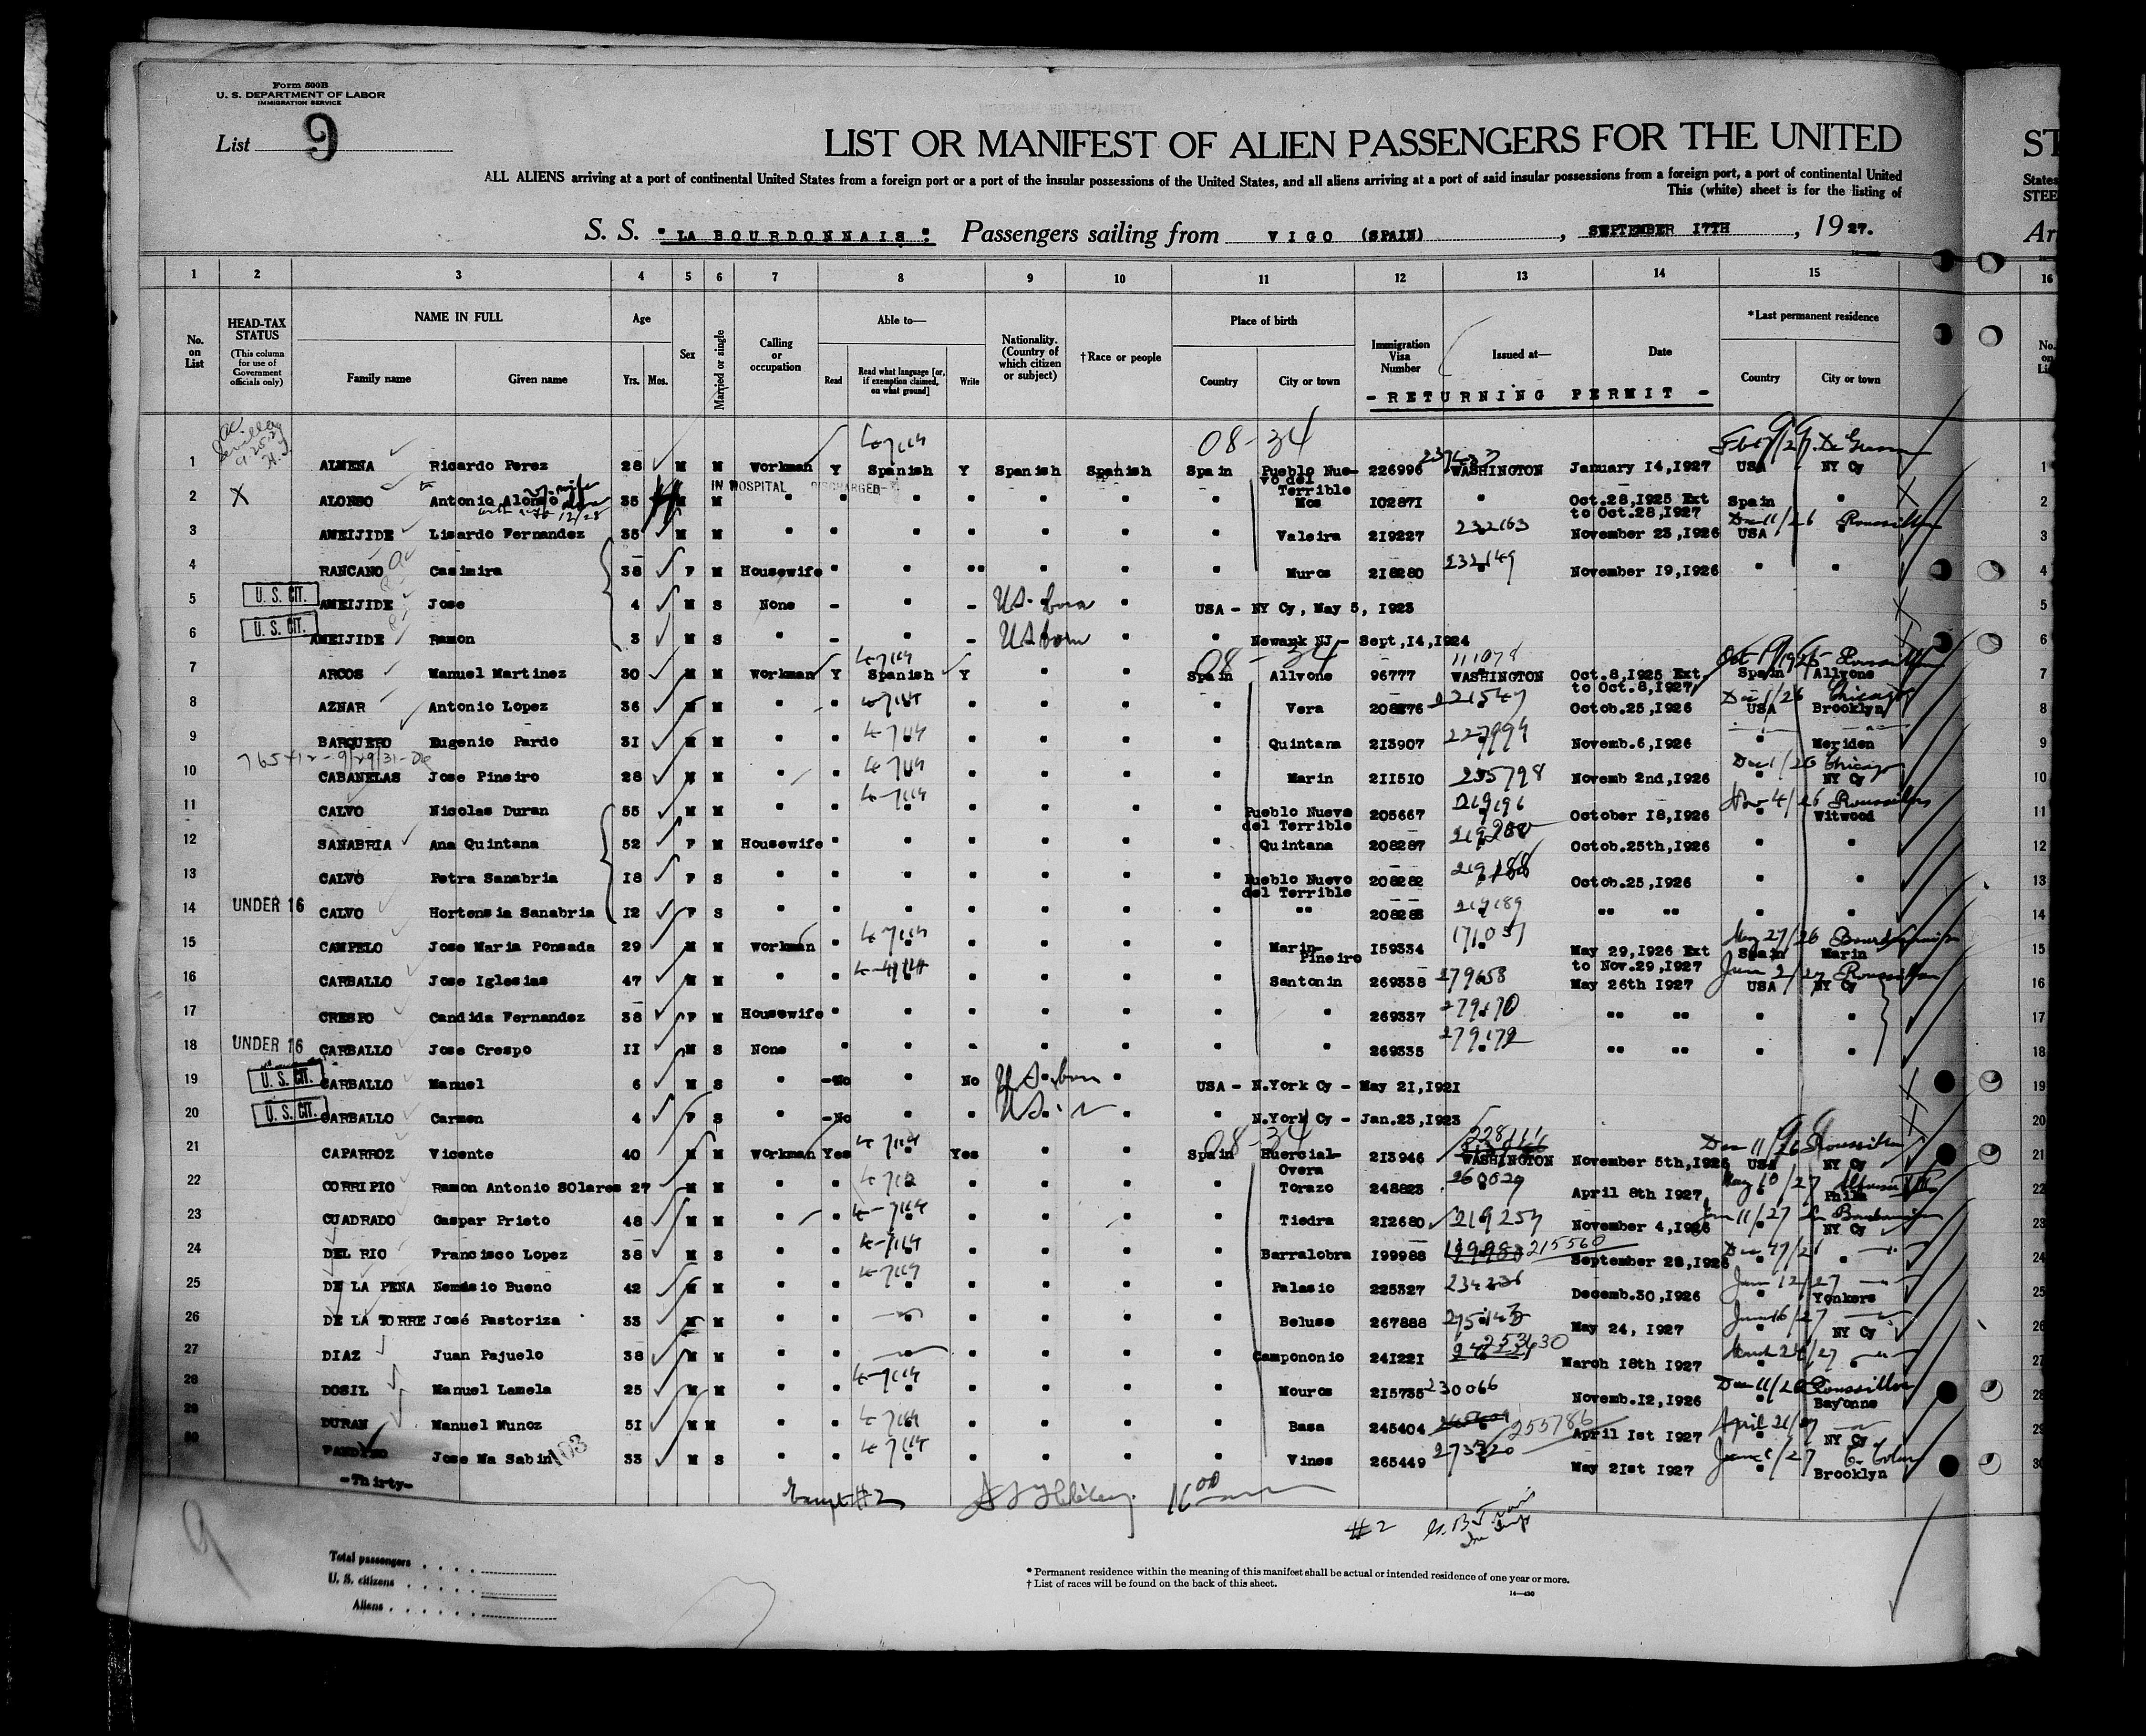 Form 500B
U. S. DEPARTMENT OF LABOR
IMMIGRATION SERVICE
List 9
LIST OR MANIFEST OF ALIEN PASSENGERS FOR THE UNITED
ST
ALL ALIENS arriving at a port of continental United States from a foreign port or a port of the insular possessions of the United States, and all aliens arriving at a port of said insular possessions from a foreign port, a port of continental United
States
This (white) sheet is for the listing of
STEE
S. S. "LA BOURDONNAIS" Passengers sailing from VIGO (SPAIN), SEPTEMBER 17TH, 1927.
Ar
1 2 3 4 5 6 7 8 9 10 11 12 13 14 15 16
No. on List
HEAD-TAX STATUS (This column for use of Government officials only)
NAME IN FULL
Family name Given name
Age
Yrs. Mos.
Sex
Married or single
Calling or occupation
Able to—
Read Read what language [or, if exemption claimed, on what ground] Write
Nationality. (Country of which citizen or subject)
†Race or people
Place of birth
Country City or town
Immigration Visa Number
Issued at—
Date
- RETURNING PERMIT -
*Last permanent residence
Country City or town
08-34
1 ALMENA Ricardo Perez 28 M M Workman Y Spanish Y Spanish Spanish Spain Pueblo Nue-vo del Terrible 226996 WASHINGTON January 14,1927 USA NY Cy 1
IN HOSPITAL DISCHARGED
2 X ALONSO Antonio Alonso 35 M M " " " " " " " Mos 102871 " Oct.28,1925 Ext to Oct.28,1927 Spain " 2
3 AMEIJIDE Lisardo Fernandez 35 M M " " " " " " " Valeira 219227 232163 November 23,1926 USA " 3
4 RANCANO Casimira 38 F M Housewife " " "" " " " Muros 218280 232149 November 19,1926 " " 4
5 U. S. CIT. AMEIJIDE Jose 4 M S None - " - US. born " USA - NY Cy, May 5, 1923 5
6 U. S. CIT. AMEIJIDE Ramon 3 M S " - " - US born " " Newark NJ - Sept.14,1924 6
08-34
7 ARCOS Manuel Martinez 30 M M Workman Y Spanish Y " " Spain Allvone 96777 111078 WASHINGTON Oct.8,1925 Ext to Oct.8,1927 Spain Allvone 7
8 AZNAR Antonio Lopez 36 M M " " " " " " " Vera 208276 221547 Octob.25,1926 USA Brooklyn 8
9 BARQUERO Eugenio Pardo 31 M M " " " " " " " Quintana 213907 227994 Novemb.6,1926 " Meriden 9
10 CABANELAS Jose Pineiro 28 M M " " " " " " " Marin 211510 235798 Novemb 2nd,1926 " NY Cy 10
11 CALVO Nicolas Duran 55 M M " " " " " " " Pueblo Nuevo del Terrible 205667 219196 October 18,1926 " Witwood 11
12 SANABRIA Ana Quintana 52 F M Housewife " " " " " " Quintana 208287 Octob.25th,1926 " " 12
13 CALVO Petra Sanabria 18 F S " " " " " " " Pueblo Nuevo del Terrible 208282 219188 Octob.25,1926 " " 13
14 UNDER 16 CALVO Hortensia Sanabria 12 F S " " " " " " " "" 208283 219189 "" "" " " 14
15 CAMPELO Jose Maria Ponsada 29 M M Workman " " " " " " Marin-Pineiro 159334 171057 May 29,1926 Ext to Nov.29,1927 Spain Marin 15
16 CARBALLO Jose Iglesias 47 M M " " " " " " " Santonin 269338 279658 May 26th 1927 USA NY Cy 16
17 CRESPO Candida Fernandez 38 F M Housewife " " " " " " " 269337 279170 "" "" " " 17
18 UNDER 16 CARBALLO Jose Crespo 11 M S None " " " " " " " 269335 279172 "" "" " " 18
19 U. S. CIT. CARBALLO Manuel 6 M S " -No " No US born " USA - N.York Cy - May 21,1921 19
20 U. S. CIT. CARBALLO Carmen 4 F S " -No " " US " " " N.York Cy - Jan.23,1923 20
08-34
21 CAPARROZ Vicente 40 M M Workman Yes " Yes " " Spain Huercial-Overa 213946 WASHINGTON November 5th,1926 USA NY Cy 21
22 CORRIPIO Ramon Antonio SOlares 27 M M " " " " " " " Torazo 248823 260029 April 8th 1927 " Phila 22
23 CUADRADO Gaspar Prieto 48 M M " " " " " " " Tiedra 212680 219257 November 4,1926 " NY Cy 23
24 DEL RIO Francisco Lopez 38 M S " " " " " " " Barralobra 199988 215560 September 28,1926 " " 24
25 DE LA PENA Nemesio Bueno 42 M M " " " " " " " Palasio 225327 234236 Decemb.30,1926 " Yonkers 25
26 DE LA TORRE José Pastoriza 33 M M " " " " " " " Beluso 267888 275143 May 24, 1927 " NY Cy 26
27 DIAZ Juan Pajuelo 38 M M " " " " " " " Campononio 241221 March 18th 1927 " " 27
28 DOSIL Manuel Lamela 25 M M " " " " " " " Mouros 215735 230066 Novemb.12,1926 " Bayonne 28
29 DURAN Manuel Nunoz 51 M M " " " " " " " Basa 245404 255786 April 1st 1927 " NY Cy 29
30 Jose Ma Sabin 33 M S " " " " " " " Vines 265449 273220 May 21st 1927 " Brooklyn 30
-Thirty-
#2
9
Total passengers
U. S. citizens
Aliens
* Permanent residence within the meaning of this manifest shall be actual or intended residence of one year or more.
† List of races will be found on the back of this sheet.
14—430